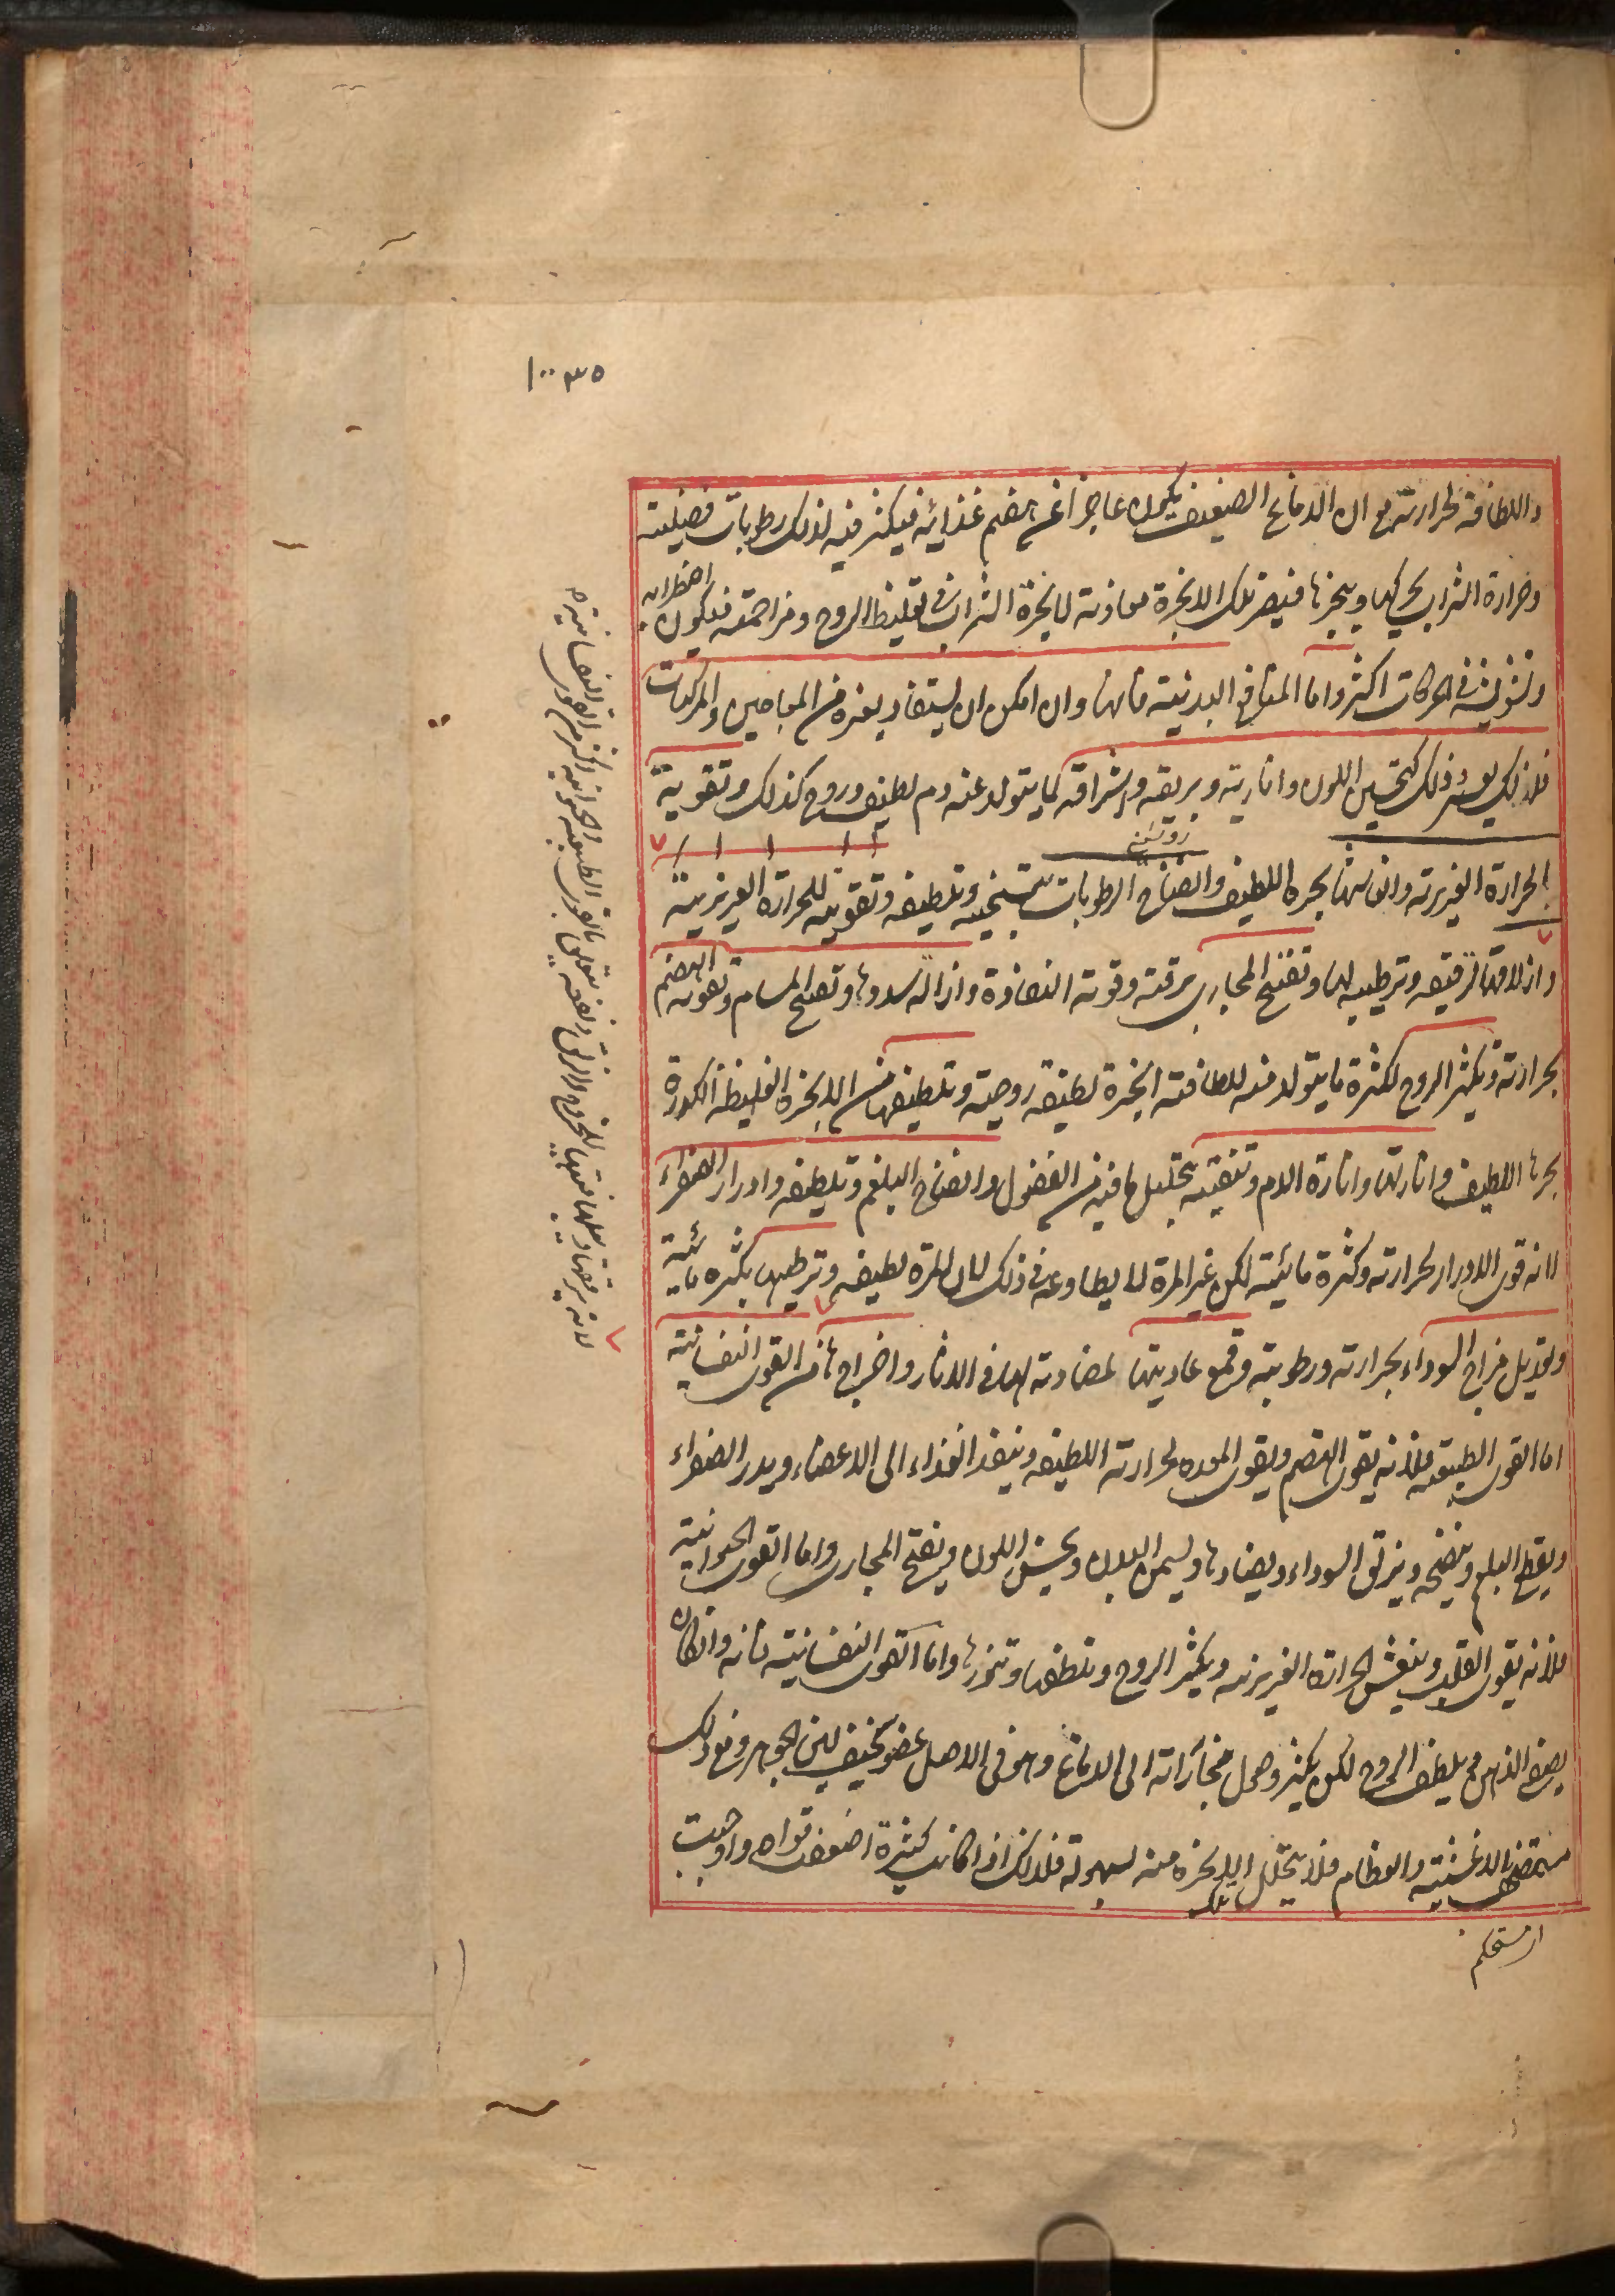 ١٠٠٣٥
واللطافة لحرارته مع ان الدماغ الضعيف يكون عاجزا عن هضم غذائه فيكثر فيه لذلك رطوبات فضلية
وحرارة الشراب يحركها ويبخرها فيصير تلك الابخرة معاونة لابخرة الشراب في تغليظ الروح ومزاحمته فيكون اضطرابه
وتشويشه في الحركات اكثر واما المنافع البدنية فانها وان امكن ان يستفاد بغيره من المعاجين والمركبات
فلذلك يعسر وذلك كتحسين اللون وانارته وبريقه واشراقه لما يتولد عنه دم لطيف وروح كذلك وتقوية
روشن
الحرارة الغريزية وانعاشها بحره اللطيف وانضاج الرطوبات بتسخينه وتلطيفه وتقويته للحرارة الغريزية
وازلاقها لترقيقه وترطيبه لها وتفتيح المجاري برقته وقوته النفاذة وازالة سددها وتفتيح المسام وتقوية الهضم
بحرارته وتكثير الروح لكثرة ما يتولد منه للطافته ابخرة لطيفة روحية وتلطيفها من الابخرة الغليظة الكدرة
بحره اللطيف وانارتها وانارة الدم وتنقيته بتحليل ما فيه من الفضول وانضاج البلغم وتلطيفه وادرار الصفراء
لانه قوى الادرار لحرارته وكثرة مائيته لكن غير المرة لا يطاوعه في ذلك لان المرة لطيفه وترطيبها بكثرة مائيته
وتعديل مزاج السوداء بحرارته ورطوبته وقمع عاديتها لمضادته لها في الاثار واخراجها من القوى النفسانية
اما القوى الطبيعية فلانه يقوى الهضم ويقوى المعدة لحرارته اللطيفه وينفذ الغذاء الى الاعضاء ويدر الصفراء
ويقطع البلغم وينضجه ويزلق السوداء ويضادها ويسمن البدن ويحسن اللون ويفتح المجارى واما القوى الحيوانية
فلانه يقوى القلب وينعش الحرارة الغريزيه ويكثر الروح وتلطفها وتنورها واما القوى النفسانية فانه وان كان
يصفى الذهن ويلطف الروح لكن يكثر وصول بخاراته الى الدماغ وهو في الاصل عضو سخيف لين الجوهر ومع ذلك
الاغشية والعظام فلا يتحلل تلك الابخره منه بسهولة فلذلك اذا كانت كثيرة اضعفت قواه واوجبت